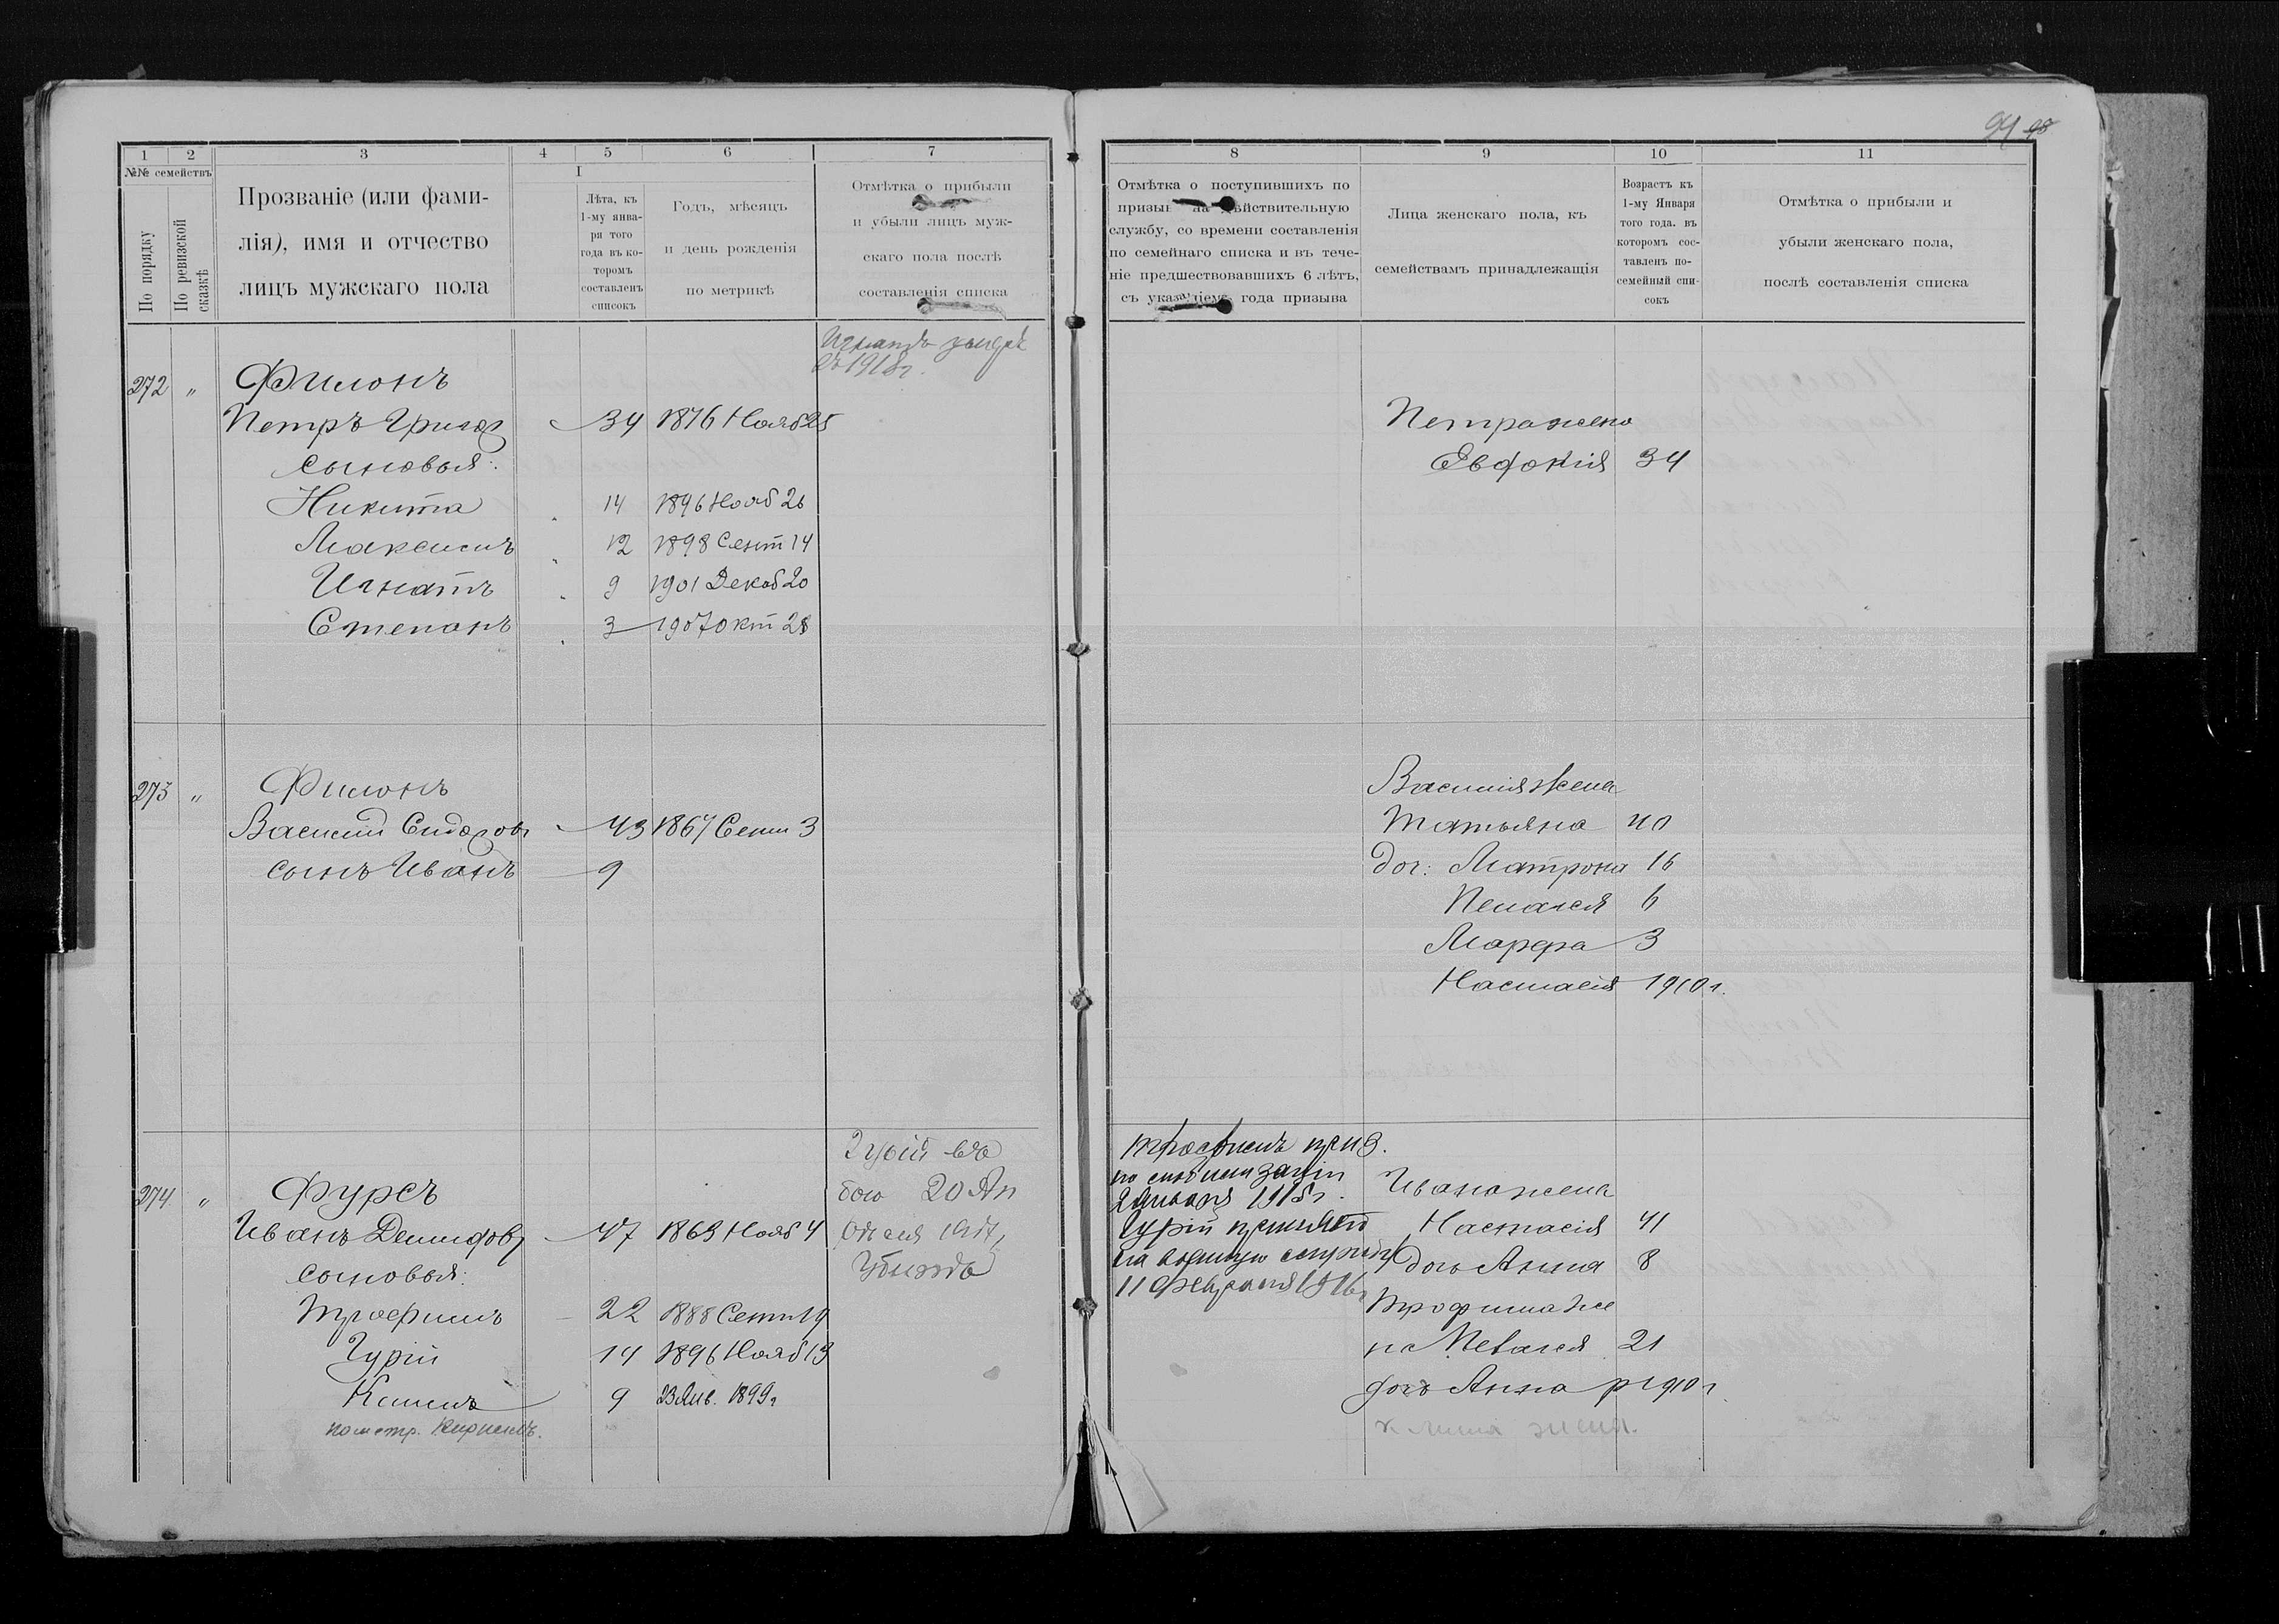 94 98
1 2 3 4 5 6 7
№№ семействъ
По порядку
По ревизской сказкѣ
Прозваніе (или фами-
лія), имя и отчество
лицъ мужскаго пола
I
Лѣта, къ
1-му янва-
ря того
года въ ко-
торомъ
составленъ
списокъ
Годъ, мѣсяцъ
и день рожденія
по метрикѣ
Отмѣтка о прибыли
и убыли лицъ муж-
скаго пола послѣ
составленія списка
Игнатъ
въ 1918г.
272 " Филонъ
Петръ Григор 34 1876 Нояб 25
сыновья:
Никита 14 1896 Нояб 26
Максимъ 12 1898 Сент 14
Игнатъ 9 1901 Декаб 20
Степанъ 3 1907 Окт 28
273 " Филонъ
Василий Сидоров 43 1867 Сент 3
сынъ Иванъ 9
Гурій въ
бою 20 Ап
1917
Убитъ
274 " Фурсъ
Иванъ Демидов 47 1863 Нояб 4
сыновья:
Трофимъ 22 1888 Сент 19
Гурій 14 1896 Нояб 13
Климъ 9 23 Янв. 1899г
по метр. Кирилъ.
8 9 10 11
Отмѣтка о поступившихъ по
призыву на дѣйствительную
службу, со времени составленія
по семейнаго списка и въ тече-
ніе предшествовавшихъ 6 лѣтъ,
съ указаніемъ года призыва
Лица женскаго пола, къ
семействамъ принадлежащія
Возрастъ къ
1-му Января
того года. въ
которомъ сос-
тавленъ по-
семейный спи-
сокъ
Отмѣтка о прибыли и
убыли женскаго пола,
послѣ составленія списка
Петра жена
Евфокия 34
Василія жена
Татьяна 40
доч: Матрона 16
Пелагея 6
Марфа 3
Настасия 1910г.
Трофимъ приз.
по мобилизаціи
Января 1915г.
Гурій принятъ
на военную службу
11 февраля 1916г
Ивана жена
Настасія 41
дочь Анна 8
Трофима же
на Пелагея 21
дочь Анна р 1910г